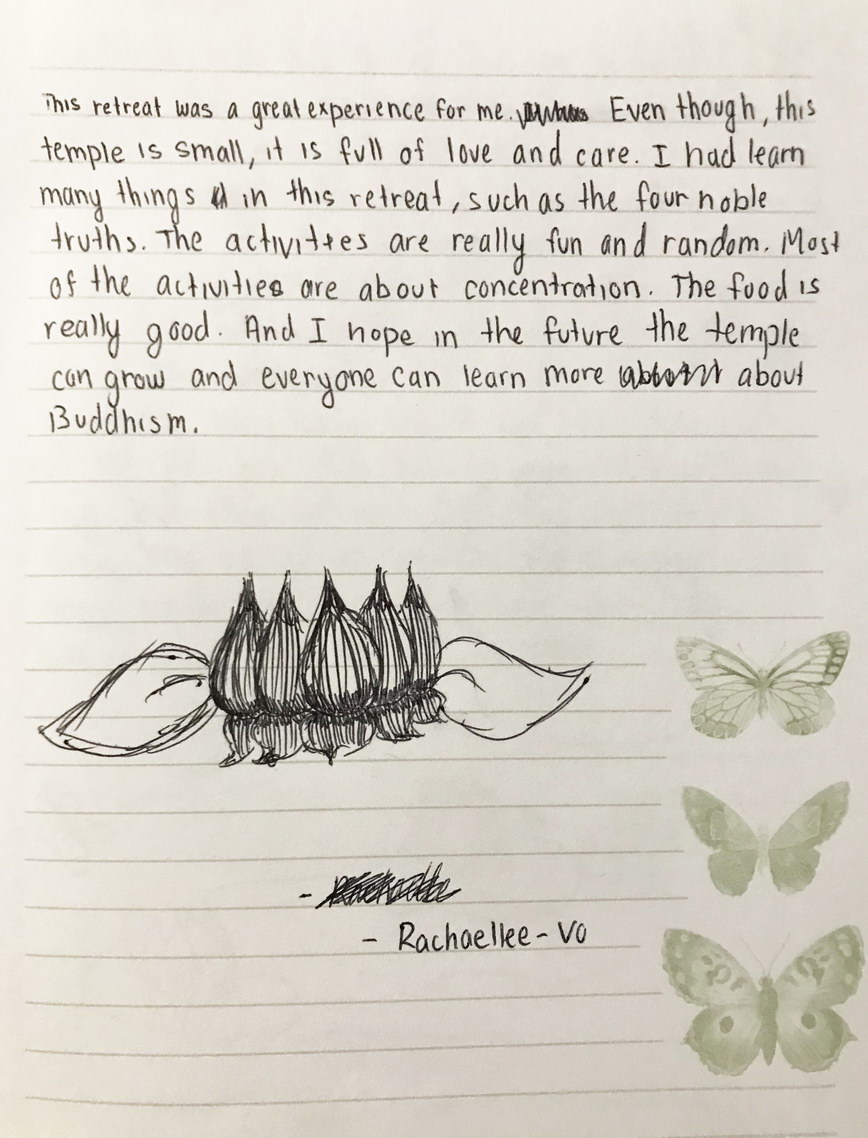 This retreat was a great experience for me. Even though, this
temple is small, it is full of love and care. I had learn
many things in this retreat, such as the four noble
truths. The activities are really fun and random. Most
of the activities are about concentration. The food is
really good. And I hope in the future the temple
can grow and everyone can learn more about
Buddhism.
-
- Rachaellee - Vo